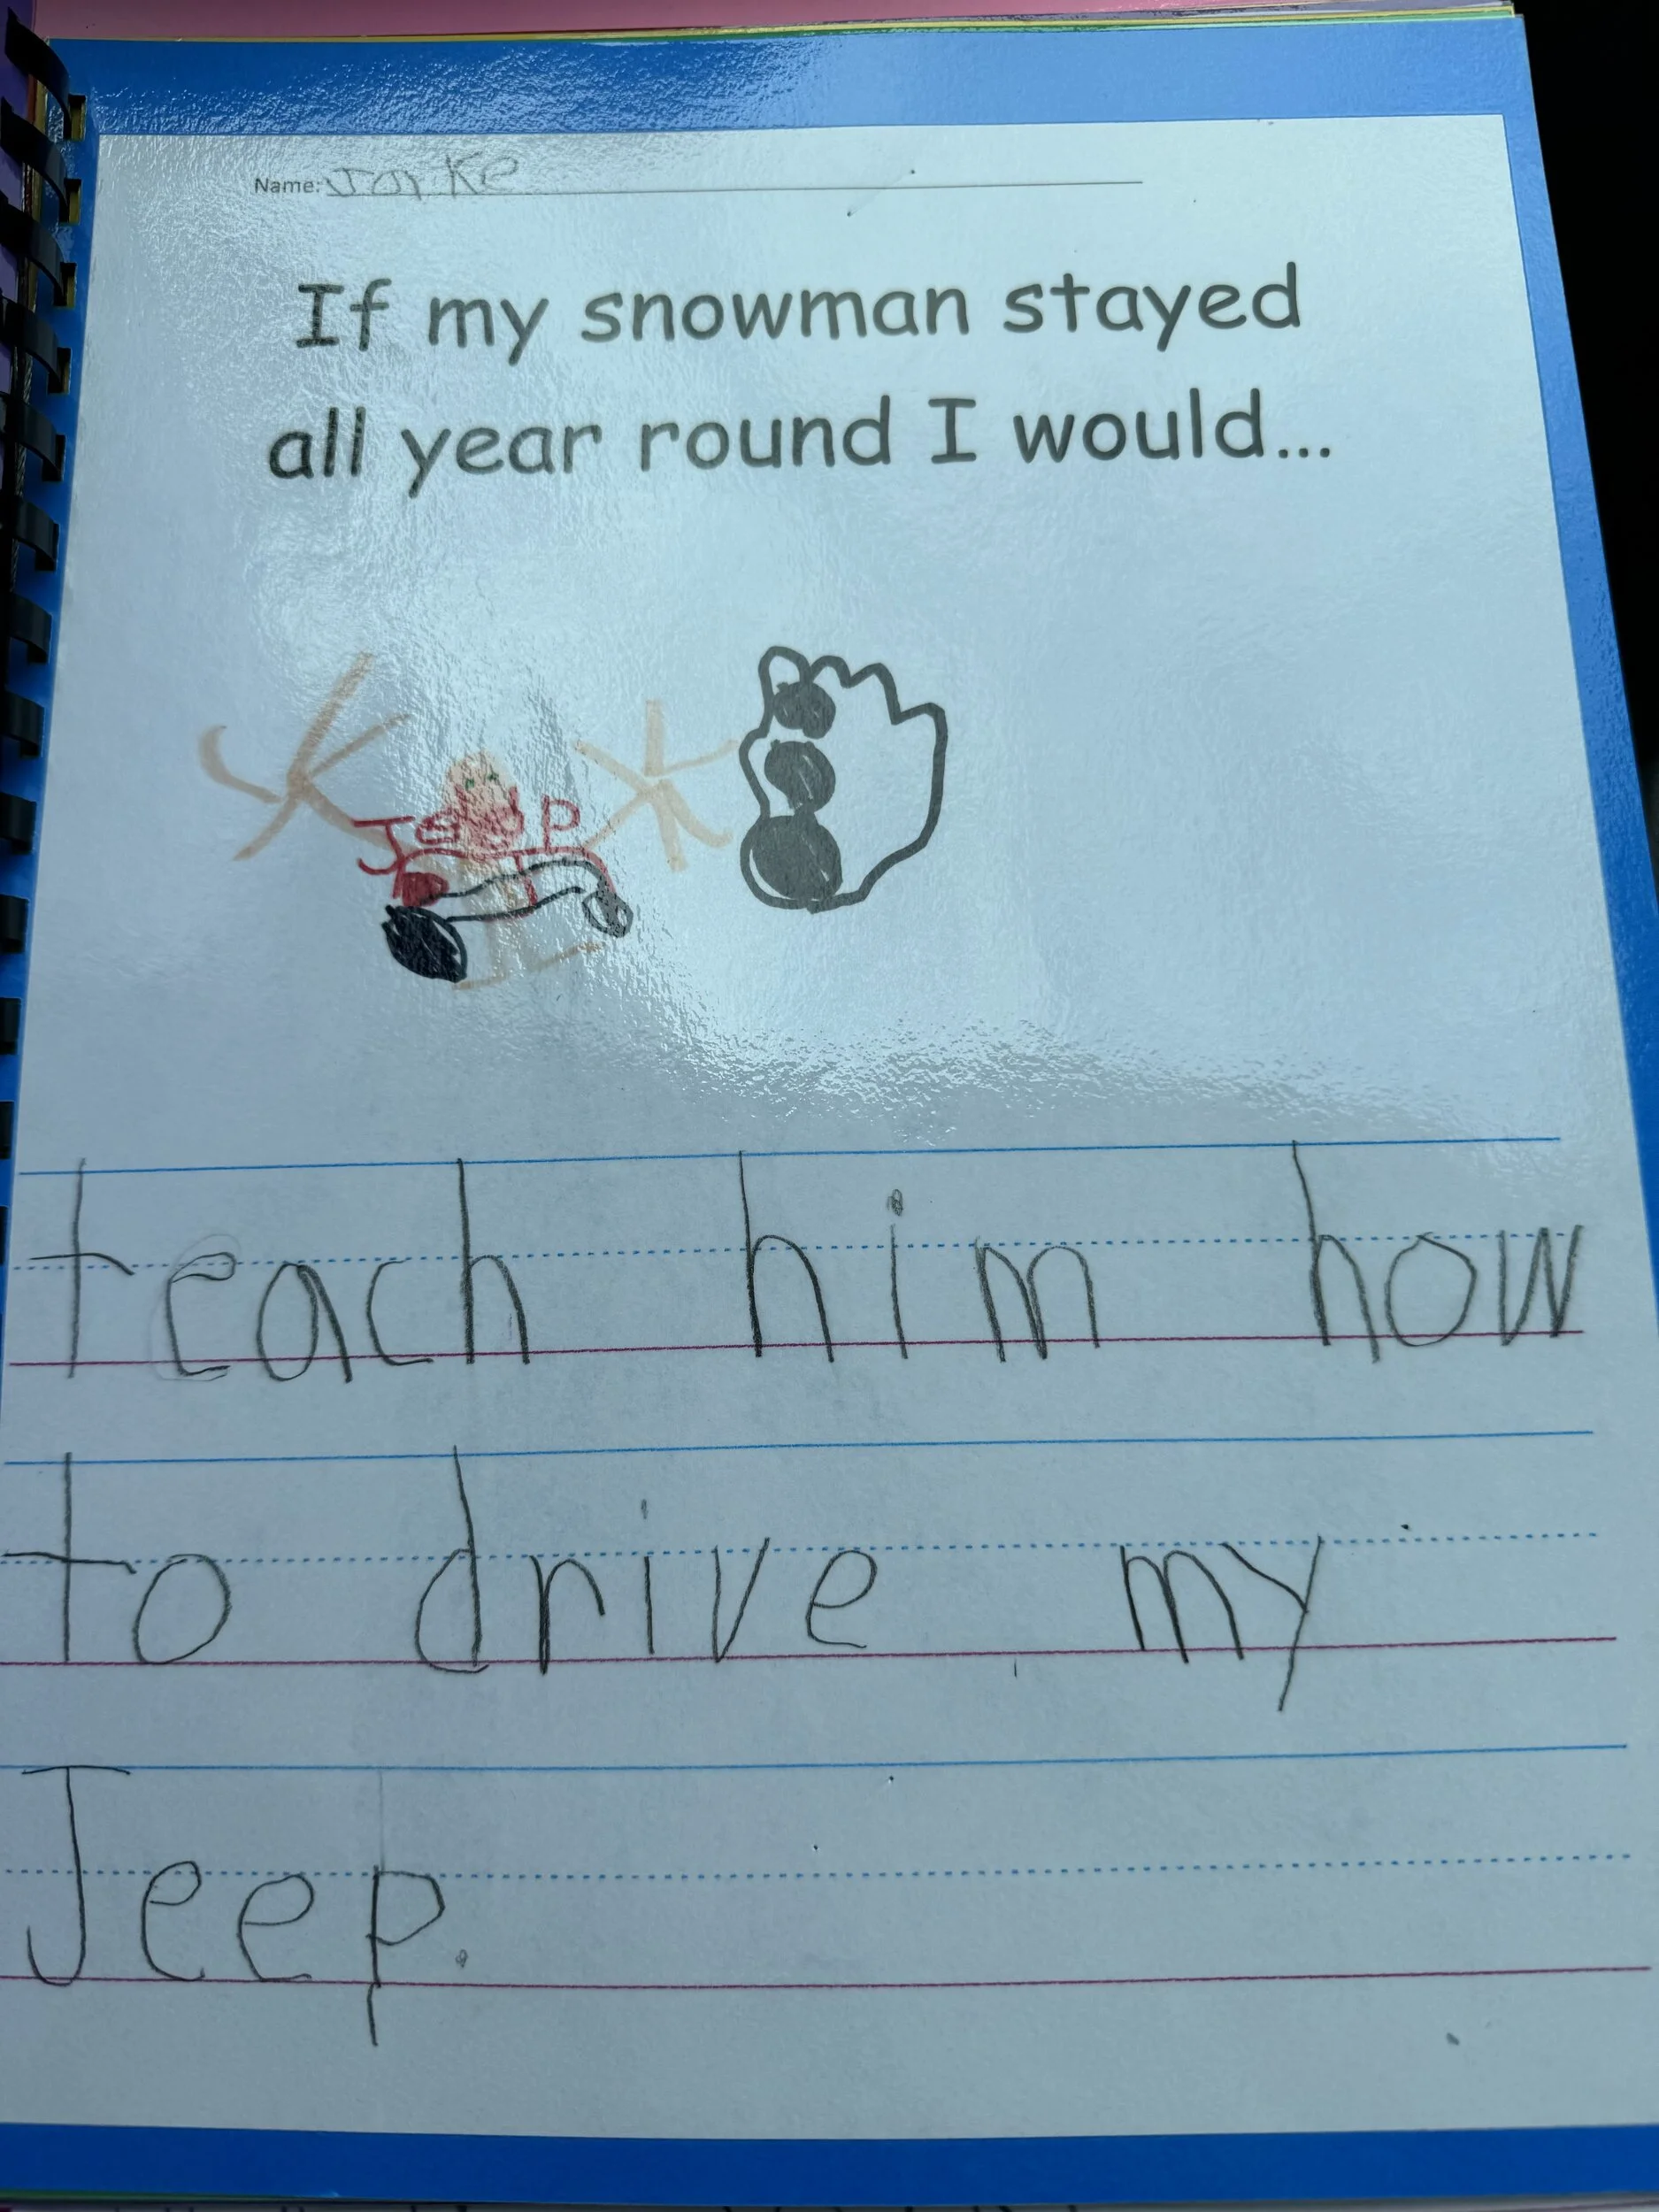 Name: Jayke
If my snowman stayed
all year round I would...
JeeP
teach him how
to drive my
Jeep.